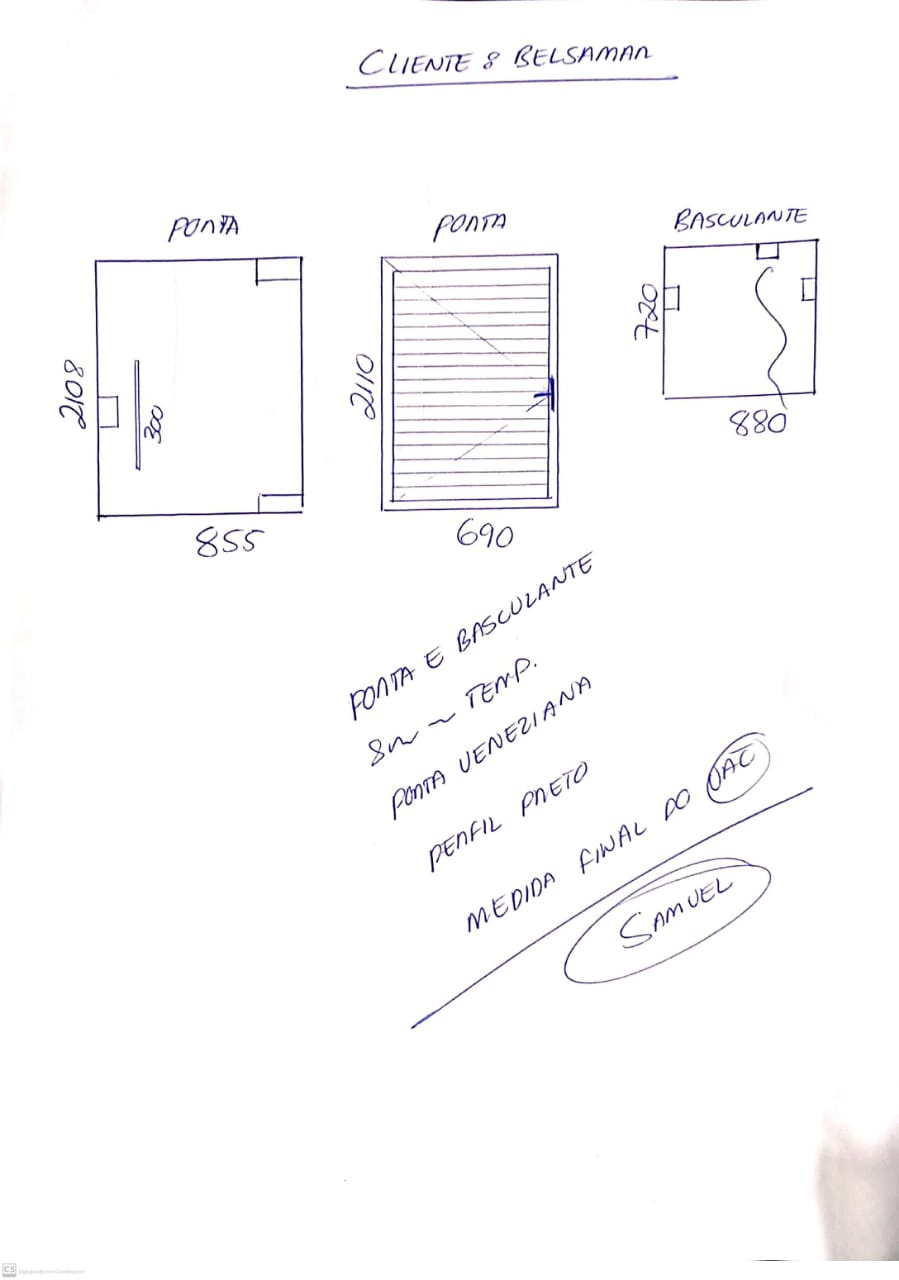 CLIENTE: BELSAMAR
PORTA
PORTA
BASCULANTE
2108
300
855
2110
690
720
880
PORTA E BASCULANTE
8mm TEMP.
PORTA VENEZIANA
PERFIL PRETO
MEDIDA FINAL DO VAC
SAMUEL
CS